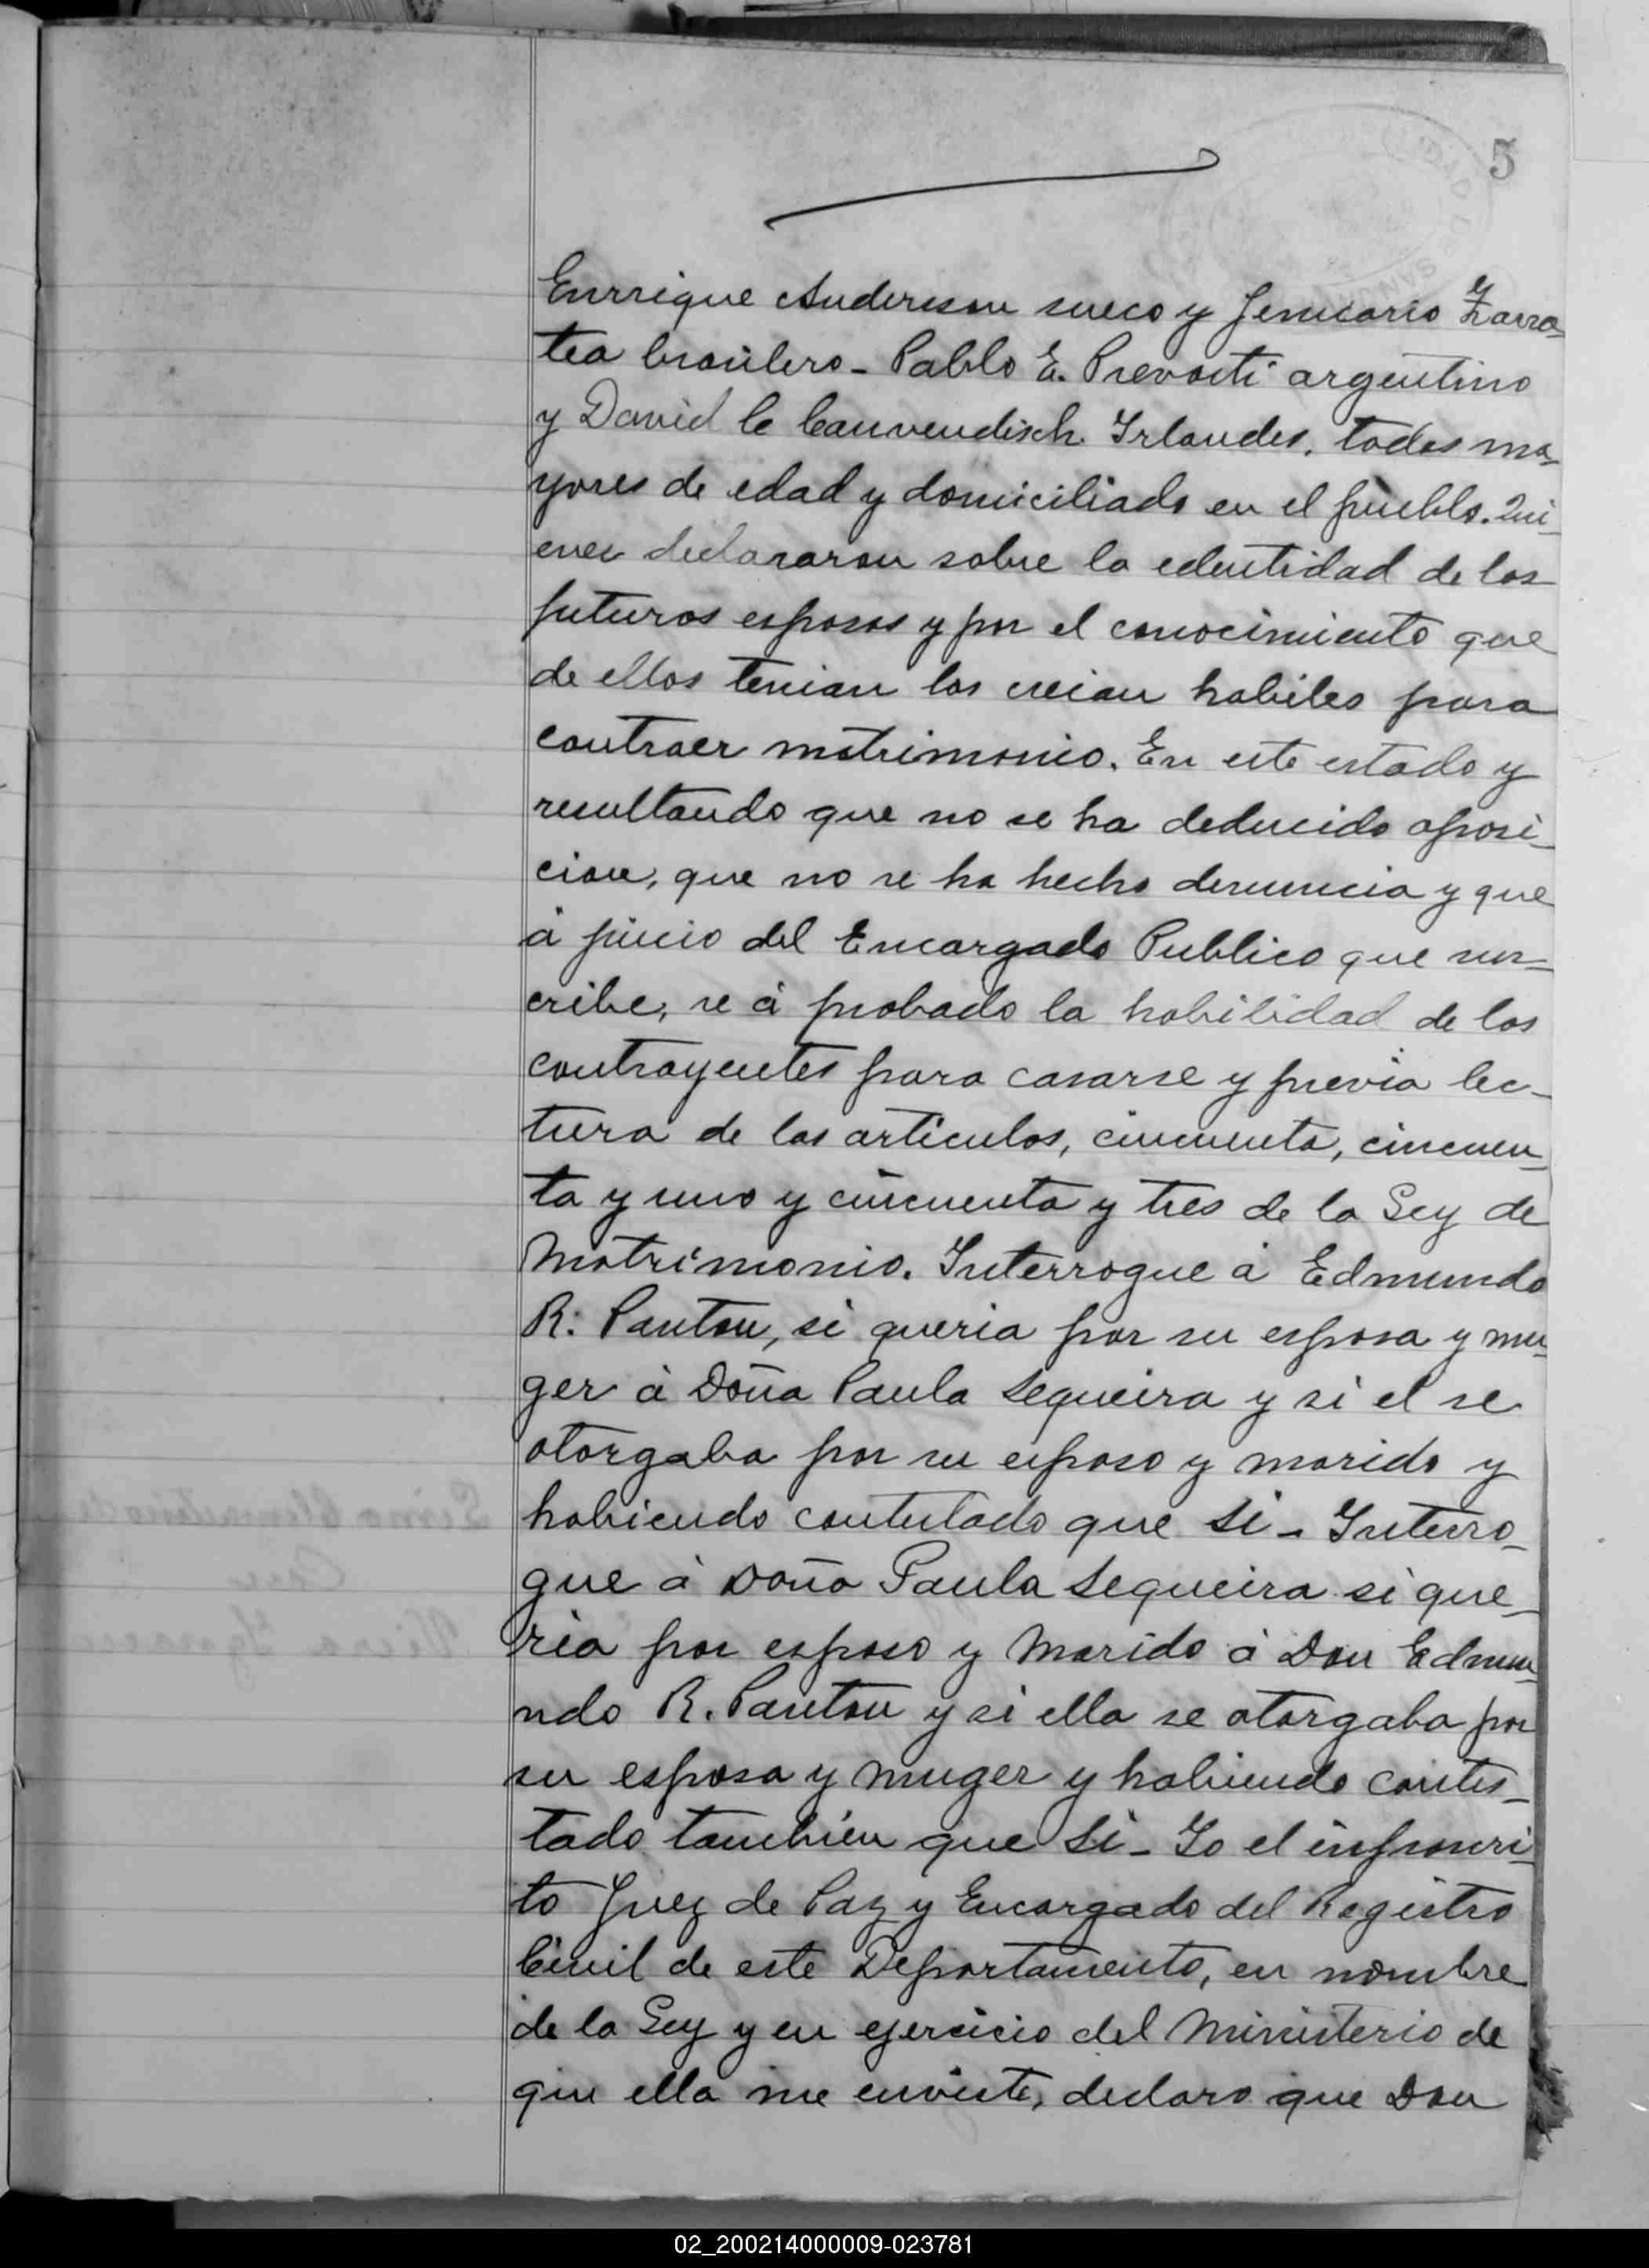 5
Enrrique Anderson sueco y Jenuario Zarra-
tea brasilero - Pablo E. Prevosti argentino
y David le Cauvendisch Yrlandes, todos ma-
yores de edad y domiciliado en el pueblo. Qui-
enes declararon sobre la edentidad de los
futuros esposos y por el conocimiento que
de ellos tenian los creian habiles para
contraer matrimonio. En este estado y
resultando que no se ha deducido oposi-
cion, que no se ha hecho denuncia y que
á juicio del Encargado Publico que sus-
cribe, se á probado la habilidad de los
contrayentes para casarse y previa lec-
tura de los articulos, cincuenta, cincuen-
ta y uno y cincuenta y tres de la Ley de
Matrimonio. Interrogue á Edmundo
R. Panton, si queria por su esposa y mu-
ger á Doña Paula Sequeira y si el se
otorgaba por su esposo y marido y
habiendo contestado que Si - Interro-
gue á Doña Paula Sequeira si que-
ria por esposo y Marido á Don Edmu-
ndo R. Panton y si ella se otorgaba por
su esposa y muger y habiendo contes-
tado tambien que Si - Yo el infrascri-
to Juez de Paz y Encargado del Registro
Civil de este Departamento, en nombre
de la Ley y en ejercicio del Ministerio de
que ella me enviste, declaro que Don
02_200214000009-023781